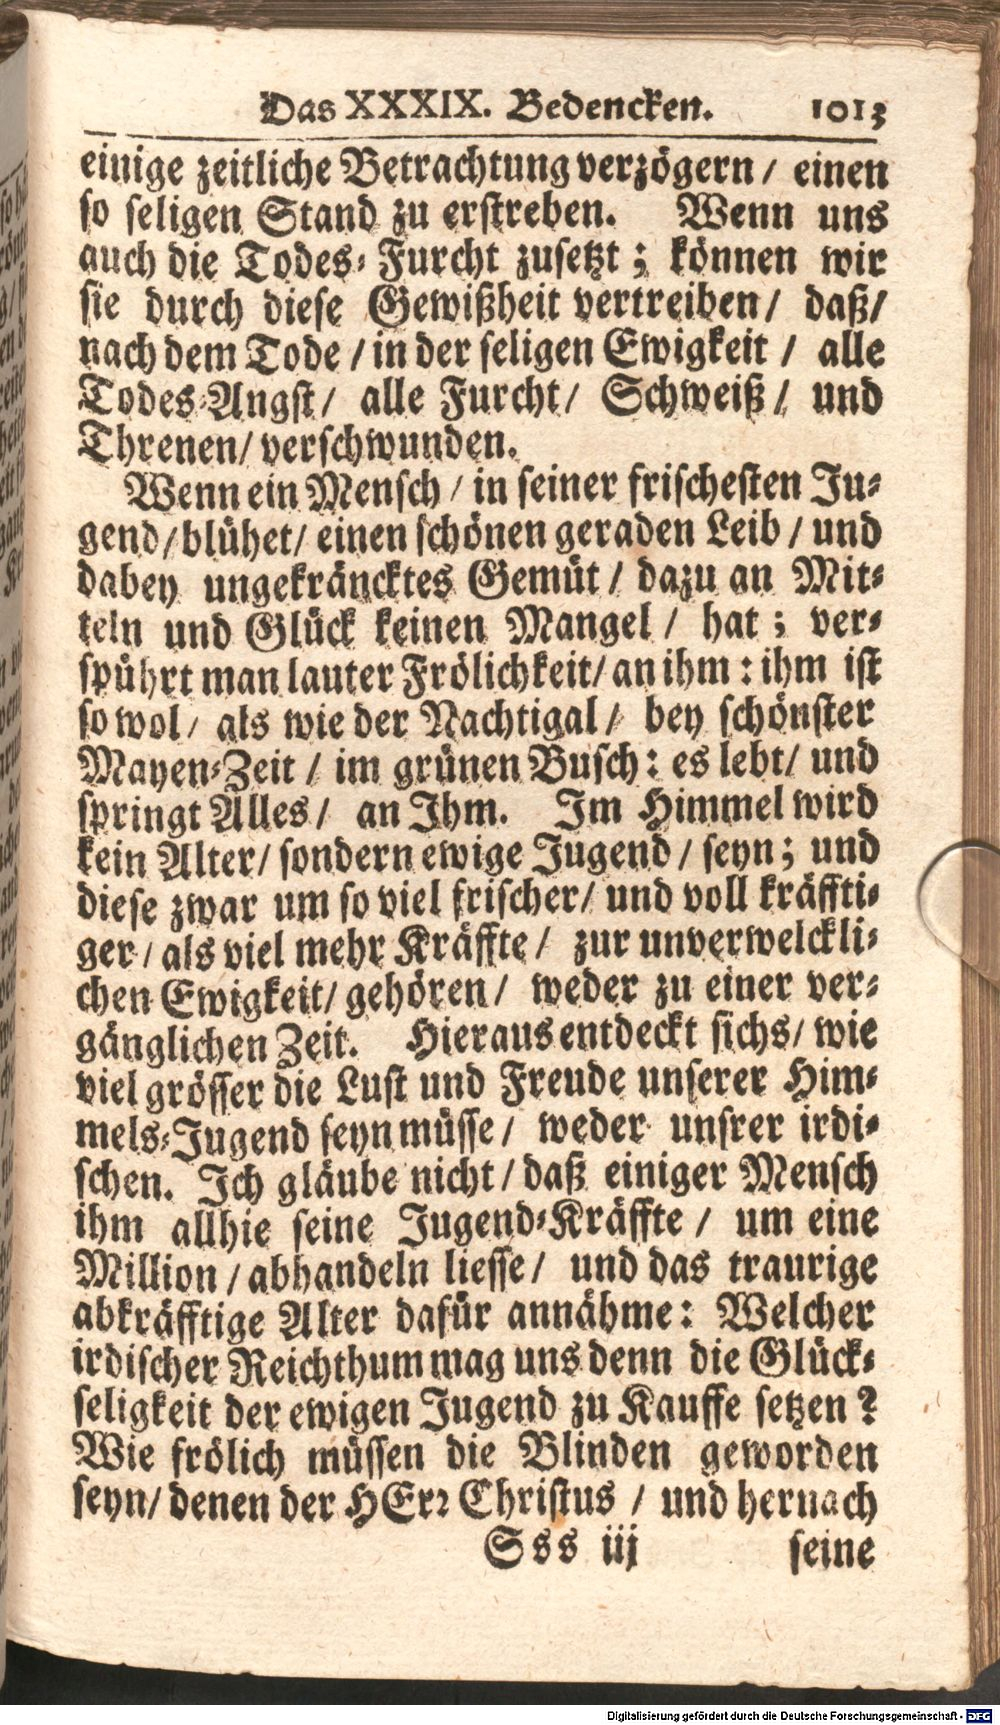 Das XXXIX. Bedencken. 1013
einige zeitliche Betrachtung verzögern / einen
so seligen Stand zu erstreben. Wenn uns
auch die Todes-Furcht zusetzt; können wir
sie durch diese Gewißheit vertreiben / daß /
nach dem Tode / in der seligen Ewigkeit / alle
Todes-Angst / alle Furcht / Schweiß / und
Threnen / verschwunden.
Wenn ein Mensch / in seiner frischesten Ju-
gend / blühet / einen schönen geraden Leib / und
dabey ungekräncktes Gemüt / dazu an Mit-
teln und Glück keinen Mangel / hat; ver-
spührt man lauter Frölichkeit / an ihm: ihm ist
so wol / als wie der Nachtigal / bey schönster
Mayen-Zeit / im grünen Busch: es lebt / und
springt Alles / an Ihm. Im Himmel wird
kein Alter / sondern ewige Jugend / seyn; und
diese zwar um so viel frischer / und voll kräffti-
ger / als viel mehr Kräffte / zur unverwelckli-
chen Ewigkeit / gehören / weder zu einer ver-
gänglichen Zeit. Hieraus entdeckt sichs / wie
viel grösser die Lust und Freude unserer Him-
mels-Jugend seyn müsse / weder unsrer irdi-
schen. Ich gläube nicht / daß einiger Mensch
ihm allhie seine Jugend-Kräffte / um eine
Million / abhandeln liesse / und das traurige
abkräfftige Alter dafür annähme: Welcher
irdischer Reichthum mag uns denn die Glück-
seligkeit der ewigen Jugend zu Kauffe setzen?
Wie frölich müssen die Blinden geworden
seyn / denen der HErr Christus / und hernach
Sss iij seine
Digitalisierung gefördert durch die Deutsche Forschungsgemeinschaft - DFG